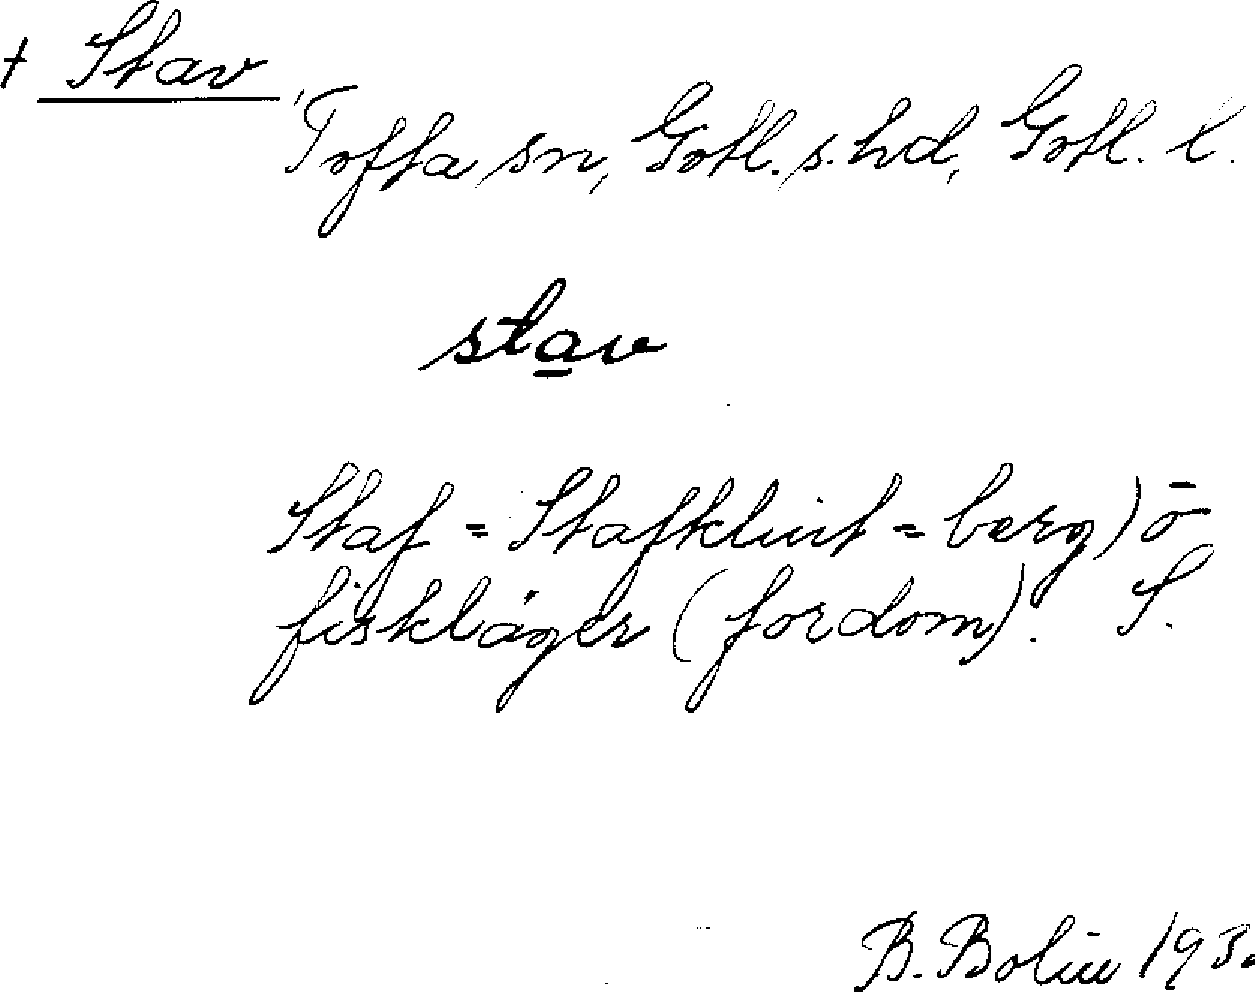 + Stav
Tofta sn, Gotl. s. hd, Gotl. l.
stav
Staf = Stafklint = berg) ō
fiskläger (fordom). S.
B. Bolin 193